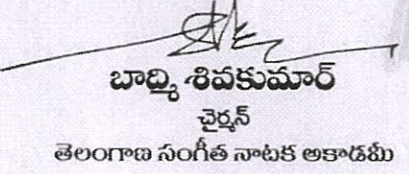 బాద్మి శివకుమార్
ఛైర్మన్
తెలంగాణ సంగీత నాటక అకాడమీ